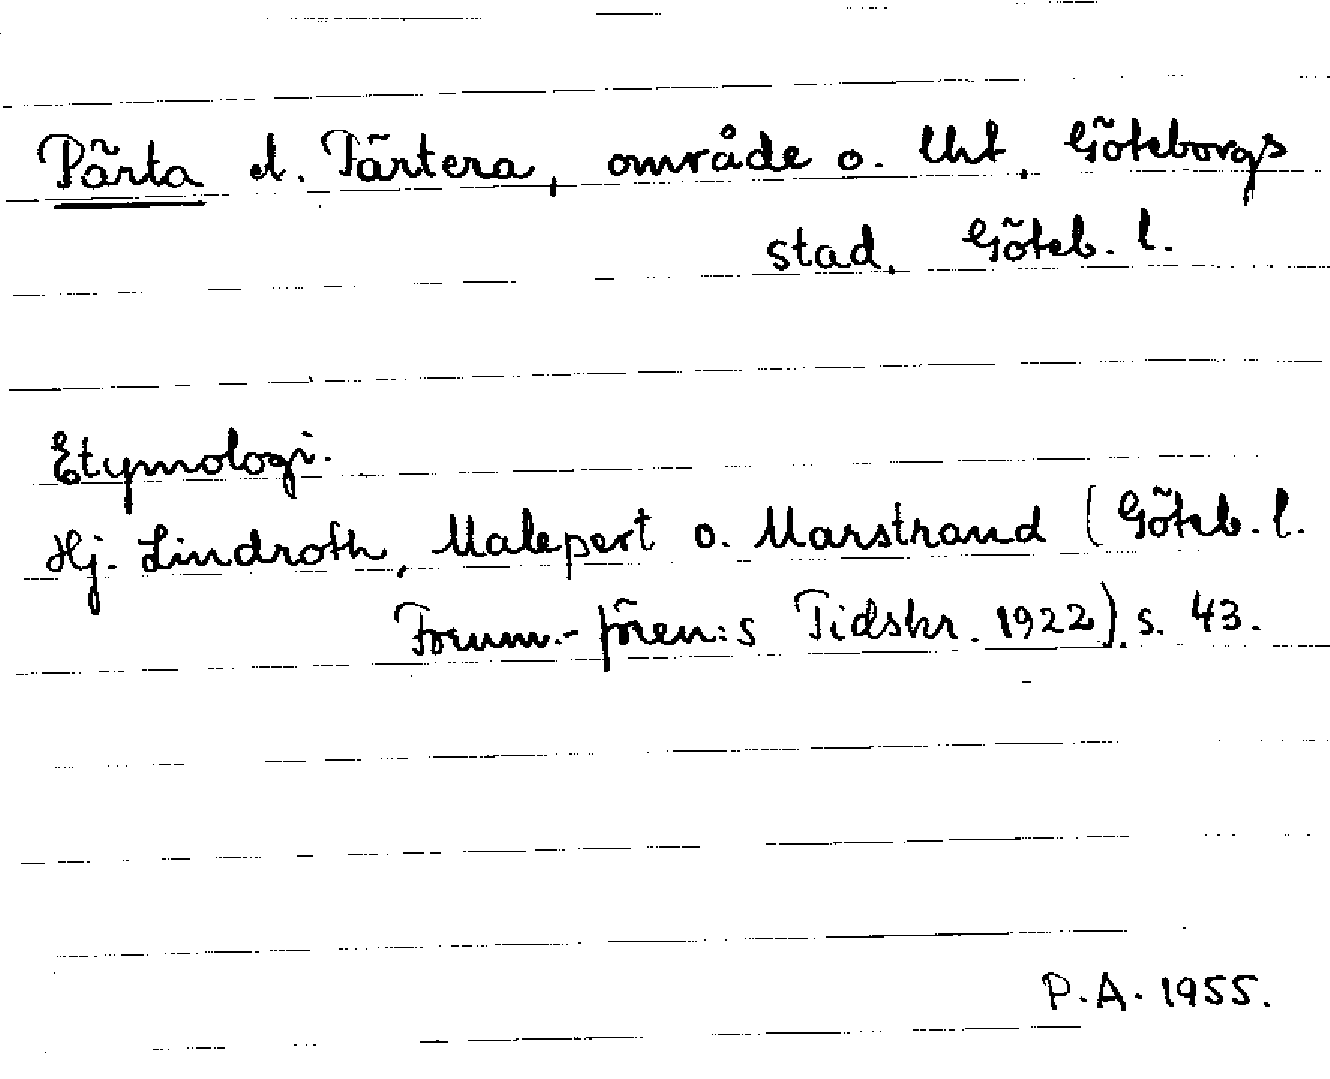 Pärta el. Pärtera, område o. tht, Göteborgs
stad, Göteb. l.
Etymologi.
Hj. Lindroth, Malepert o. Marstrand (Göteb. l.
Fornm.-fören:s Tidskr. 1922), s. 43.
P.A. 1955.